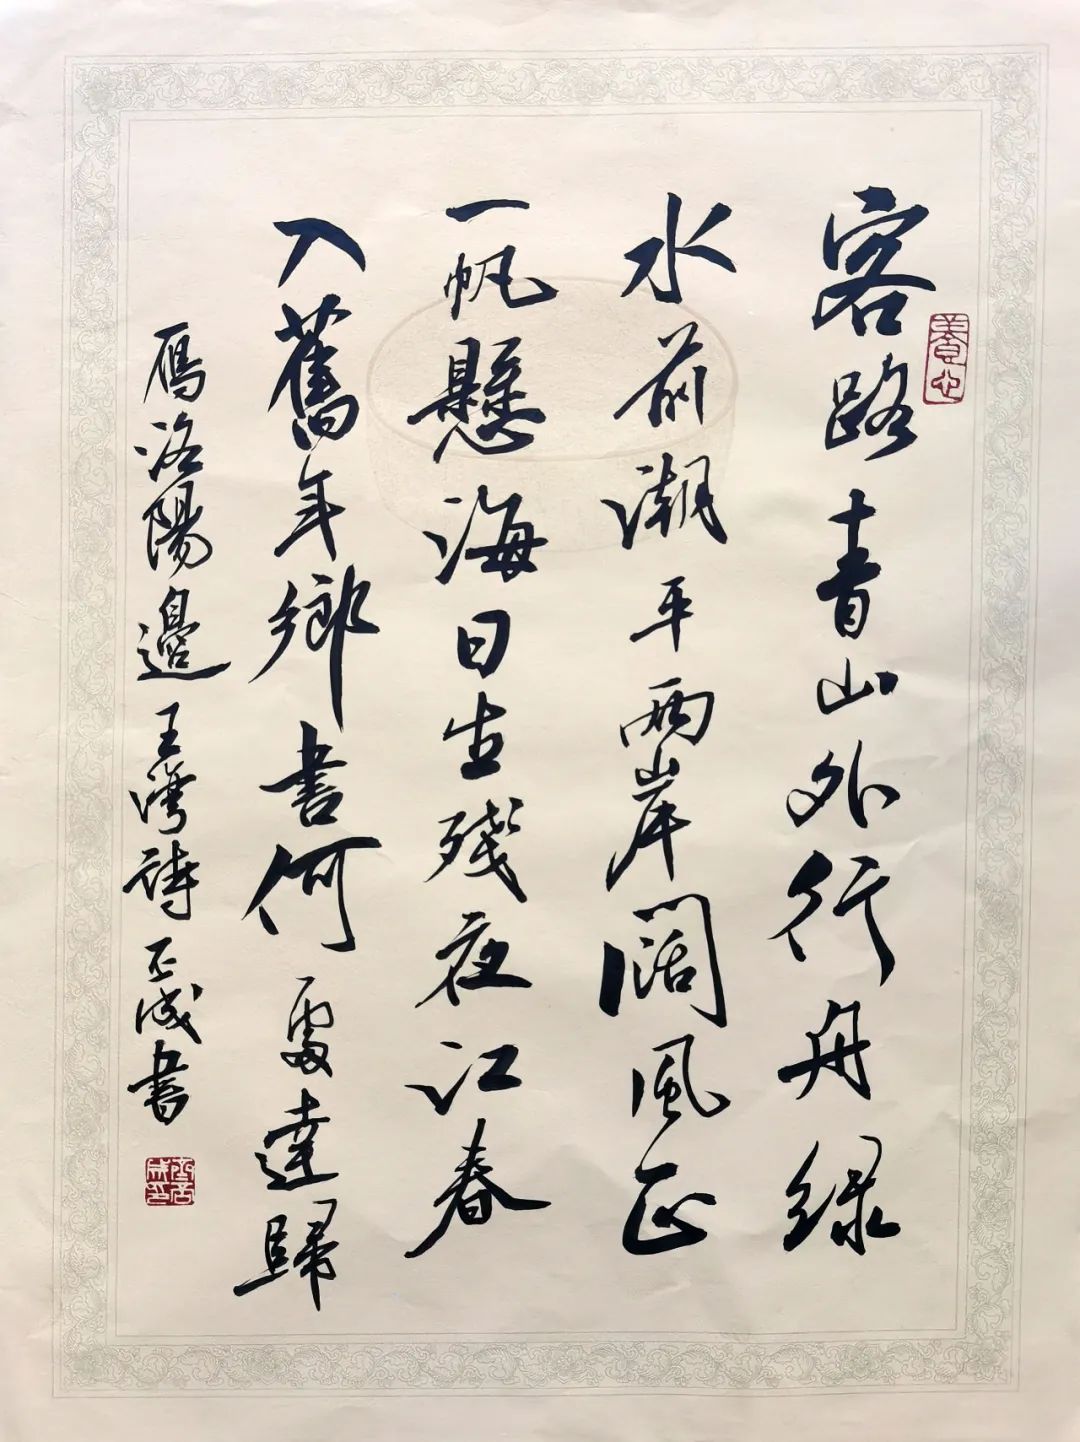 客路青山外行舟綠
水前潮平兩岸闊風正
一帆懸海日生殘夜江春
入舊年鄉書何處達歸
雁洛陽邊王灣詩 成書
養心